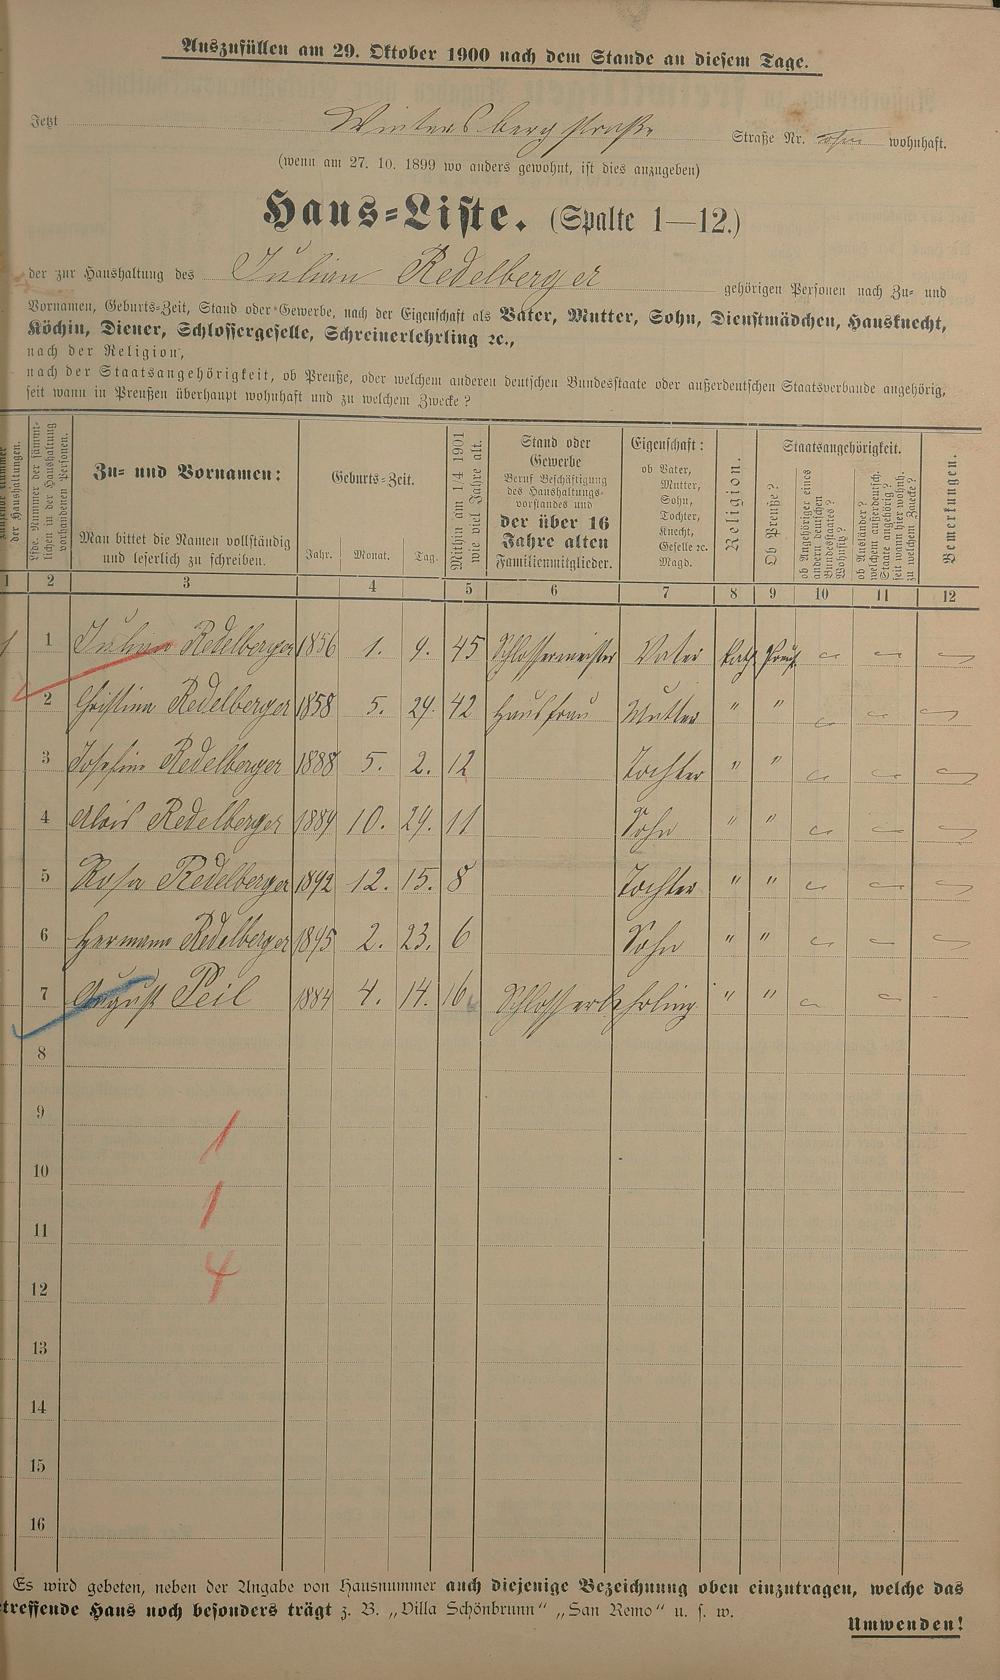 Auszufüllen am 29. Oktober 1900 nach dem Stande an diesem Tage.
Jetzt Wintersbergstraße Straße Nr. ohne wohnhaft.
(wenn am 27. 10. 1899 wo anders gewohnt, ist dies anzugeben)
Haus-Liste. (Spalte 1—12.)
der zur Haushaltung des Julian Redelberger gehörigen Personen nach Zu- und
Vornamen, Geburts-Zeit, Stand oder Gewerbe, nach der Eigenschaft als Vater, Mutter, Sohn, Dienstmädchen, Hausknecht,
Köchin, Diener, Schlossergeselle, Schreinerlehrling ꝛc.,
nach der Religion,
nach der Staatsangehörigkeit, ob Preuße, oder welchem anderen deutschen Bundesstaate oder außerdeutschen Staatsverbande angehörig,
seit wann in Preußen überhaupt wohnhaft und zu welchem Zwecke?
Nummer der Haushaltungen.
Lfde. Nummer der sämmtlichen in der Haushaltung vorhandenen Personen.
Zu- und Vornamen:
Man bittet die Namen vollständig
und leserlich zu schreiben.
Geburts-Zeit.
Jahr. Monat. Tag.
Mithin am 1/4 1901 wie viel Jahre alt.
Stand oder
Gewerbe
Beruf Beschäftigung
des Haushaltungs-
vorstandes und
der über 16
Jahre alten
Familienmitglieder.
Eigenschaft:
ob Vater,
Mutter,
Sohn,
Tochter,
Knecht,
Geselle ꝛc.
Magd.
Religion.
Staatsangehörigkeit.
Ob Preuße?
ob Angehöriger eines andern deutschen Bundesstaates? Wohnsitz?
ob Ausländer? welchem außerdeutsch. Staate angehörig? seit wann hier wohnh. zu welchem Zwecke?
Bemerkungen.
1 2 3 4 5 6 7 8 9 10 11 12
1 1 Julian Redelberger 1856 1. 9. 45 Schlossermeister Vater Kath Preuß
2 Christina Redelberger 1858 5. 29. 42 Hausfrau Mutter " "
3 Josefine Redelberger 1888 5. 2. 12 Tochter " "
4 Alois Redelberger 1889 10. 29. 11 Sohn " "
5 Rosa Redelberger 1892 12. 15. 8 Tochter " "
6 Hermann Redelberger 1895 2. 23. 6 Sohn " "
7 August Peil 1884 4. 14. 16 Schlosserlehrling " "
8
9
1
10
1
11
4
12
13
14
15
16
Es wird gebeten, neben der Angabe von Hausnummer auch diejenige Bezeichnung oben einzutragen, welche das
treffende Haus noch besonders trägt z. B. „Villa Schönbrunn“ „San Remo“ u. s. w.
Umwenden!